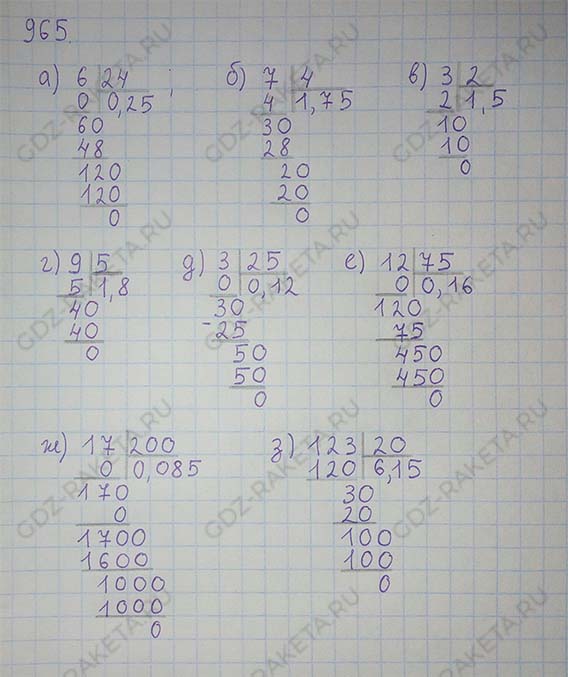 965.
а) 6 24 ; б) 7 4 в) 3 2
0 0,25 4 1,75 2 1,5
60 30 10
48 28 10
120 20 0
120 20
0 0
г) 9 5 д) 3 25 е) 12 75
5 1,8 0 0,12 0 0,16
40 30 120
40 - 25 75
0 50 450
50 450
0 0
ж) 17 200 з) 123 20
0 0,085 120 6,15
170 30
0 20
1700 100
1600 100
1000 0
1000
0
GDZ-RAKETA.RU